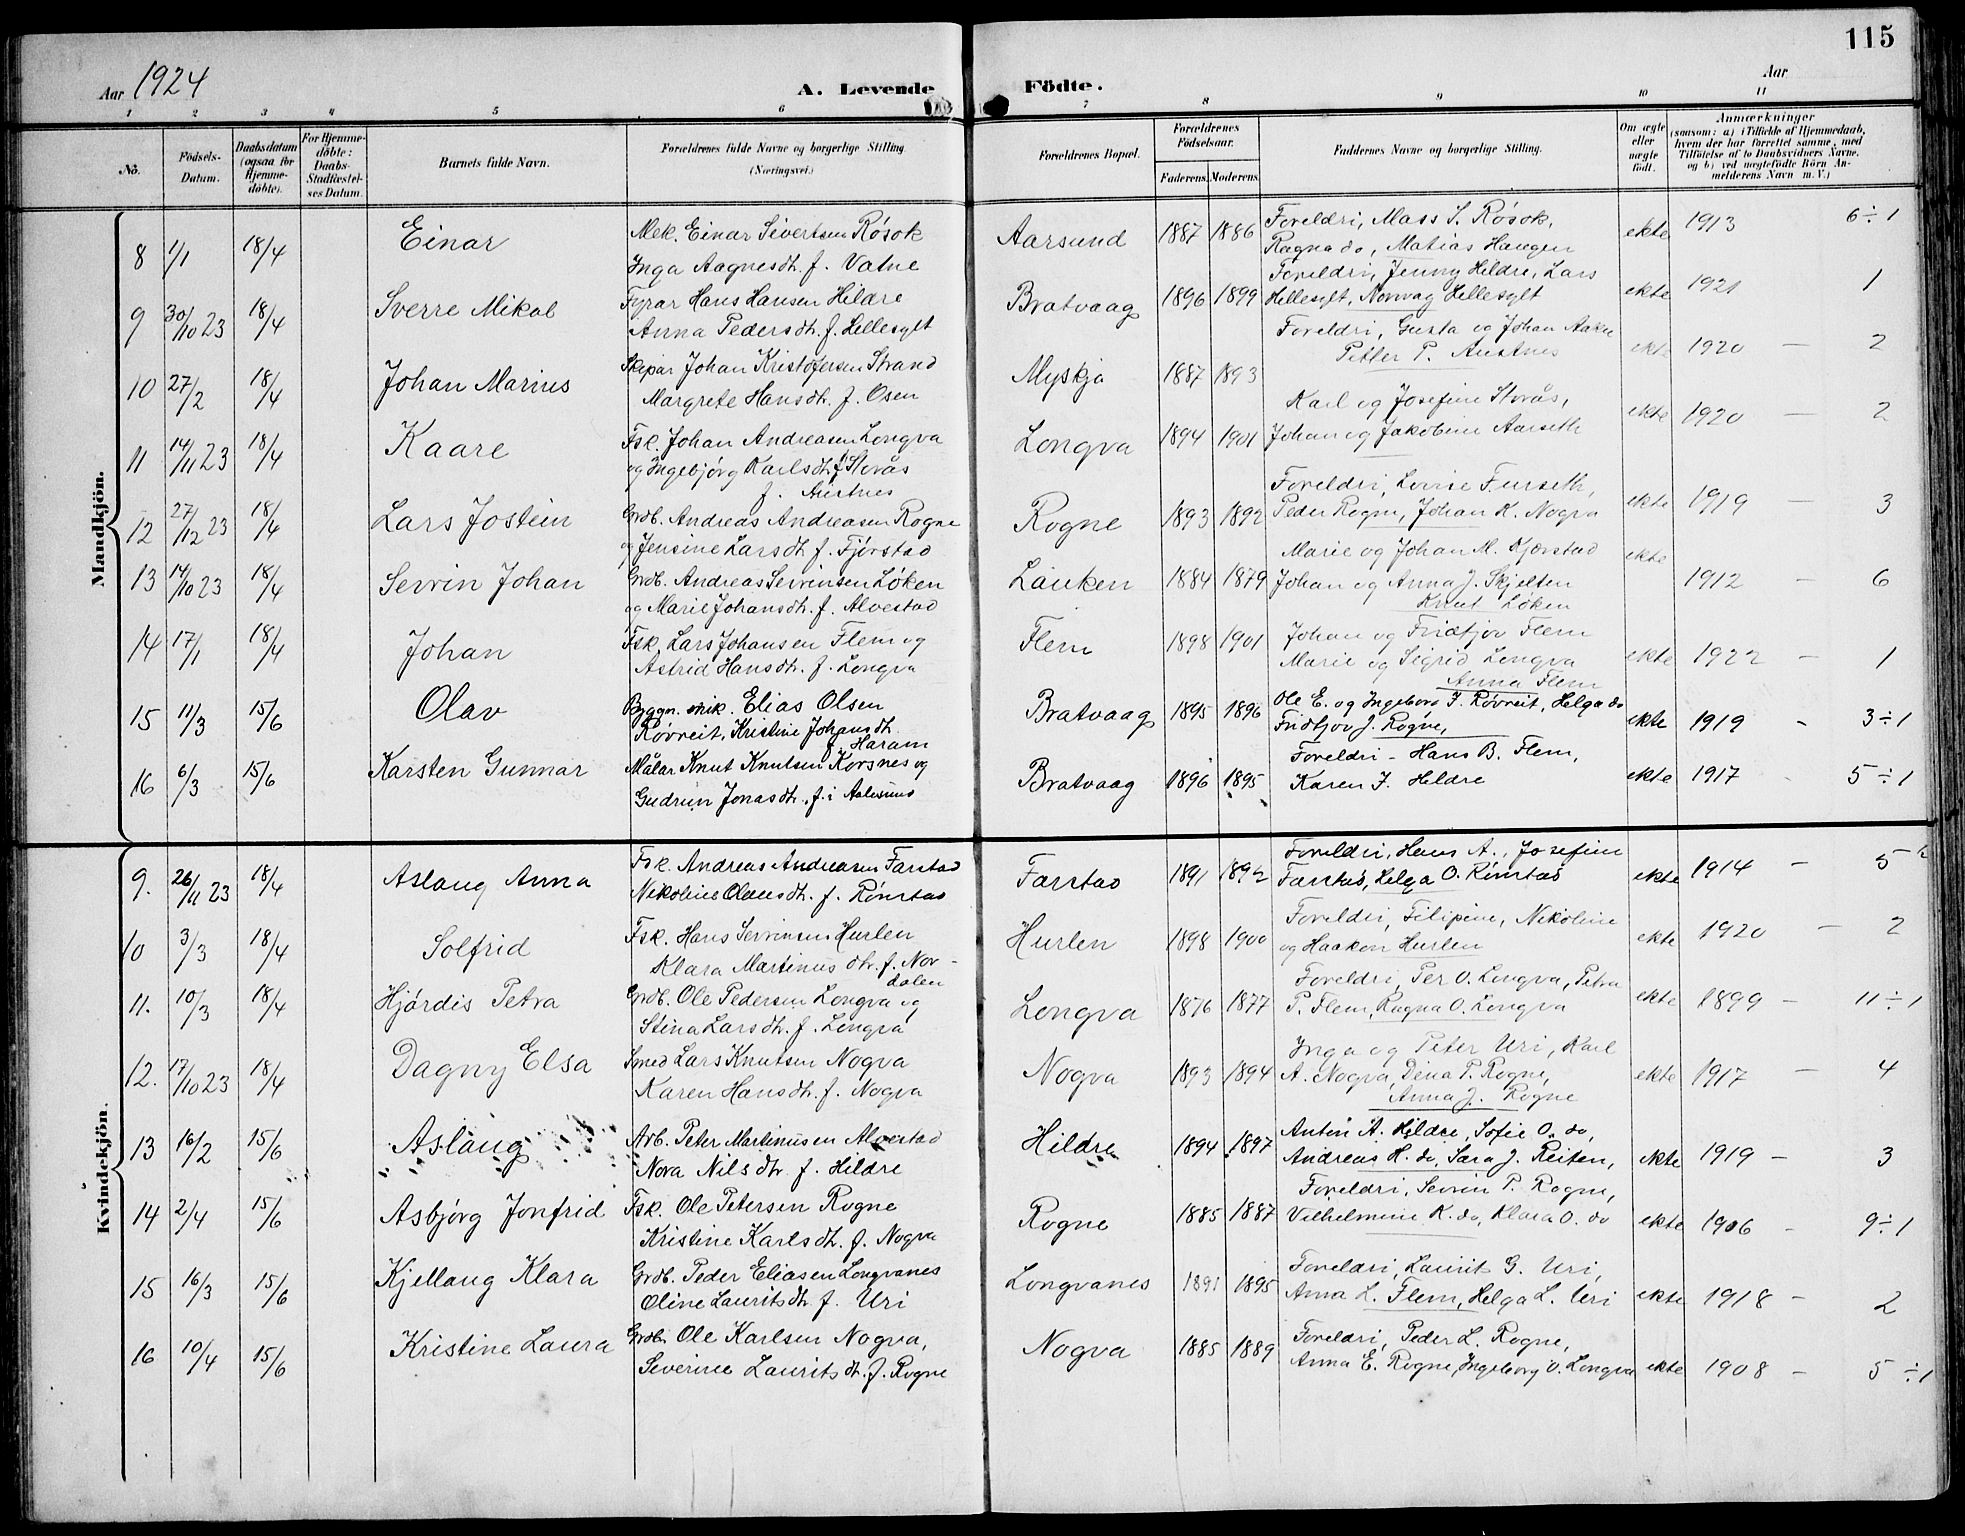 115
Aar 1924 A. Levende Födte. Aar
1 2 3 4 5 6 7 8 9 10 11
No.
Födsels-Datum.
Daabsdatum (ogsaa for Hjemme-döbte).
For Hjemme-döbte: Daabs-Stadfæstel-ses Datum.
Barnets fulde Navn.
Forældrenes fulde Navne og borgerlige Stilling
(Næringsvei.)
Forældrenes Bopæl.
Forældrenes Födselsaar.
Faderens. Moderens.
Faddernes Navne og borgerlige Stilling.
Om ægte eller uægte födt.
Anmærkninger
(saasom: a) i Tilfælde af Hjemmedaab, hvem der har forrettet samme, med Tilföielse af to Daabsvidners Navne, og b) ved uægtefödte Börn An-melderens Navn m. V.)
Mandkjön.
8 1/1 18/4 Einar Mek. Einar Sivertsen Røsok Aarsund 1887 1886 Foreldri, Mass S. Røsok, ekte 1913 6÷1
Inga Aagnesdtr. f. Vatne Ragna do, Matias Haugen
9 30/10 23 18/4 Sverre Mikal Fyrar Hans Hansen Hildre Bratvaag 1896 1899 Foreldri, Jenny Hildre, Lars ekte 1921 1
Anna Pedersdtr. f. Hellesylt Hellesylt, Norvag Hellesylt
10 27/2 18/4 Johan Marius Skipar Johan Kristofersen Strand Myskja 1887 1893 Foreldri, Gusta og Johan Aakre ekte 1920 — 2
Margrete Hansdtr. f. Osen Petter P. Austnes
11 14/11 23 18/4 Kaare Fsk. Johan Andreasen Longva Longva 1894 1901 Karl og Josefine Storås, ekte 1920 — 2
og Ingebjørg Karlsdtr. f. Storås Johan og Jakobine Aarseth
12 27/12 23 18/4 Lars Jostein f. Austnes
Grdb. Andreas Andreasen Rogne Rogne 1893 1892 Foreldri, Lovise Furseth, ekte 1919 — 3
og Jensine Larsdtr. f. Fjørstad Peder Rogne, Johan K. Nogva
13 14/10 23 18/4 Sevrin Johan Grdb. Andreas Sevrinsen Løken Lauken 1884 1879 Marie og Johan M. Kjærstad ekte 1912 — 6
og Marie Johansdtr. f. Alvestad Johan og Anna J. Skjelten
Knut Løken
14 17/1 18/4 Johan Fsk. Lars Johansen Flem og Flem 1898 1901 Johan og Fridtjov Flem ekte 1922 — 1
Astrid Hansdtr. f. Longva Marie og Sigrid Longva
Anna Flem
15 11/3 15/6 Olav Byggn. mik. Elias Olsen Bratvaag 1895 1896 Ole E. og Ingeborg J. Røvreit, Helga do ekte 1919 - 3÷1
Røvreit, Kristine Johansdtr. Fridtjov J. Rogne,
f. Haram
16 6/3 15/6 Karsten Gunnar Målar Knut Knutsen Korsnes og Bratvaag 1896 1895 Foreldri - Hans B. Flem, ekte 1917 - 5÷1
Gudrun Jonasdtr. f. i Aalesund Karen J. Hildre
Kvindekjön.
9. 26/11 23 18/4 Aslaug Anna Fsk. Andreas Andreasen Farstad Farstad 1891 1892 Foreldri, Hans A., Josefine ekte 1914 — 5
Nikoline Olausdtr. f. Rømstad Farstad, Helga O. Rømstad
10 3/3 18/4 Solfrid Fsk. Hans Sevrinsen Hurlen Hurlen 1898 1900 Foreldri, Filipine, Nikoline ekte 1920 — 2
Klara Martinusdtr. f. Nor-dalen og Haakon Hurlen
11. 10/3 18/4 Hjørdis Petra Grdb. Ole Pedersen Longva og Longva 1876 1877 Foreldri, Per O. Longva, Petra ekte 1899 — 11÷1
Stina Larsdtr. f. Longva P. Flem, Ragna O. Longva
12. 17/10 23 18/4 Dagny Elsa Smed Lars Knutsen Nogva Nogva 1893 1894 Inga og Peter Uri, Karl ekte 1917 — 4
Karen Hansdtr. f. Nogva A. Nogva, Dina P. Rogne,
Anna J. Rogne
13 16/2 15/6 Aslaug Arb. Peter Martinusen Alvestad Hildre 1894 1897 Anton A. Hildre, Sofie O. do, ekte 1919 — 3
Nora Nilsdtr. f. Hildre Andreas H. do, Sara J. Reiten,
14 2/4 15/6 Asbjørg Jonfrid Fsk. Ole Petersen Rogne Rogne 1885 1887 Foreldri, Sevrin P. Rogne, ekte 1906 - 9÷1
Kristine Karlsdtr. f. Nogva Vilhelmine K. do, Klara O. do
15 16/3 15/6 Kjellaug Klara Grdb. Peder Eliasen Longvanes Longvanes 1891 1895 Foreldri, Laurits G. Uri, ekte 1918 - 2
Oline Lauritsdtr. f. Uri Anna L. Flem, Helga L. Uri
16 10/4 15/6 Kristine Laura Grdb. Ole Karlsen Nogva, Nogva 1885 1889 Foreldri, Peder L. Rogne, ekte 1908 — 5÷1
Severine Lauritsdtr. f. Rogne Anna E. Rogne, Ingeborg O. Longva